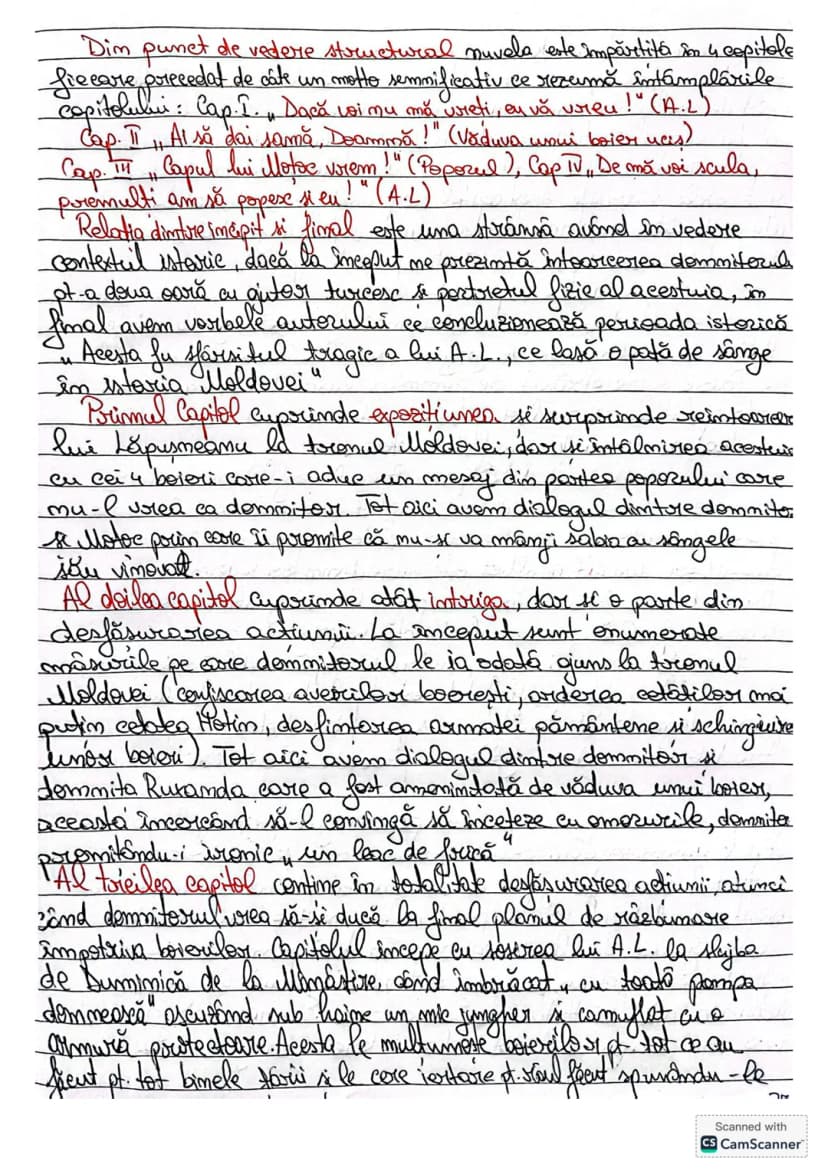 Din punct de vedere structural nuvela este împărțită în 4 capitole
fiecare precedat de câte un motto semnificativ ce rezumă întâmplările
capitolului: Cap.I. „Dacă voi nu mă vreți, eu vă vreu!" (A.L)
Cap. II „Ai să dai samă, Doamnă!" (Văduva unui boier ucis)
Cap. III „Capul lui Moțoc vrem!" (Poporul), Cap IV „De mă voi scula,
premulți am să popesc și eu!" (A.L)
Relația dintre incipit și final este una strânsă având în vedere
contextul istoric, dacă la început ne prezintă întoarcerea domnitorului
pt-a doua oară cu ajutor turcesc și portretul fizic al acestuia, în
final avem vorbele autorului ce concluzionează perioada istorică
„Acesta fu sfârșitul tragic a lui A.L., ce lasă o pată de sânge
în istoria Moldovei"
Primul Capitol cuprinde expozițiunea și surprinde reîntoarcer
lui Lăpușneanu la tronul Moldovei, dar și întâlnirea acestuia
cu cei 4 boieri care-i aduc un mesaj din partea poporului care
nu-l vrea ca domnitor. Tot aici avem dialogul dintre domnito
și Moțoc prin care îi promite că nu-și va mânji sabia cu sângele
său vinovat.
Al doilea capitol cuprinde atât intriga, dar și o parte din
desfășurarea acțiunii. La început sunt enumerate
măsurile pe care domnitorul le ia odată ajuns la tronul
Moldovei (confiscarea averilor boerești, arderea cetăților mai
puțin cetatea Hotin, desființarea armatei pământene și schingiuire
unor boieri). Tot aici avem dialogul dintre domnitor și
domnița Ruxanda care a fost amenințată de văduva unui boier,
aceasta încercând să-l convingă să înceteze cu omorurile, domnito
promitându-i ironic „un leac de frică"
Al treilea capitol conține în totalitate desfășurarea acțiunii, atunci
când domnitorul vrea să-și ducă la final planul de răzbunare
împotriva boierilor. Capitolul începe cu sosirea lui A.L. la slujba
de Duminică de la Mănăstire, când îmbrăcat „cu toată pompa
domnească" ascuzând sub haine un mic jungher și camuflat cu o
armură protectoare. Acesta le mulțumește boierilor pt. tot ce au
făcut pt. tot binele țării și le cere iertare pt. răul făcut spunându-le
Scanned with
CS CamScanner